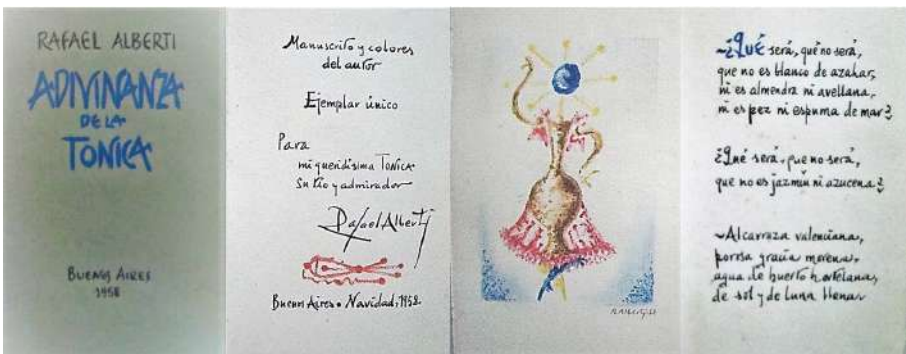 RAFAEL ALBERTI
ADIVINANZA
DE LA
TONICA
BUENOS AIRES
1958
Manuscrito y colores
del autor
Ejemplar único
Para
mi queridísima TONICA
su tío y admirador
Rafael Alberti
Buenos Aires • Navidad, 1958.
R. ALBERTI, 58
~¿Qué será, que no será,
que no es blanco de azahar,
ni es almendra ni avellana,
ni es pez ni espuma de mar?
¿Qué será, que no será,
que no es jazmín ni azucena?
~Alcarraza valenciana,
gracia morena,
agua de huerto hortelana,
de sol y de luna llena.